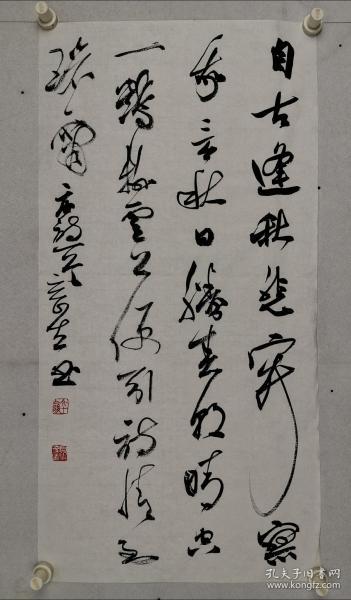 自古逢秋悲寂寥
我言秋日胜春朝晴空
一鹤排云上便引诗情到
碧霄
孔夫子旧书网
www.kongfz.com